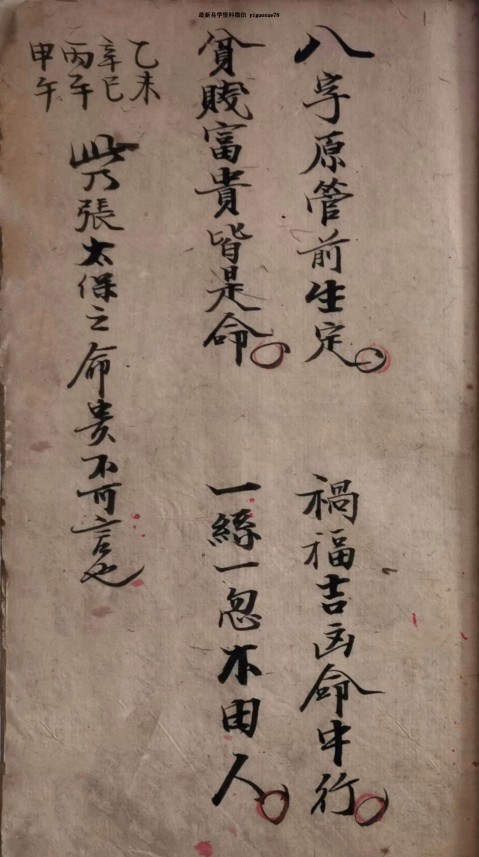 最新易学资料微信 yiguoxue78
八字原管前生定。
禍福吉凶命中行。
貧賤富貴皆是命。
一絲一忽不由人。
乙未
辛巳
丙午
甲午
此乃張太保之命贵不可言也